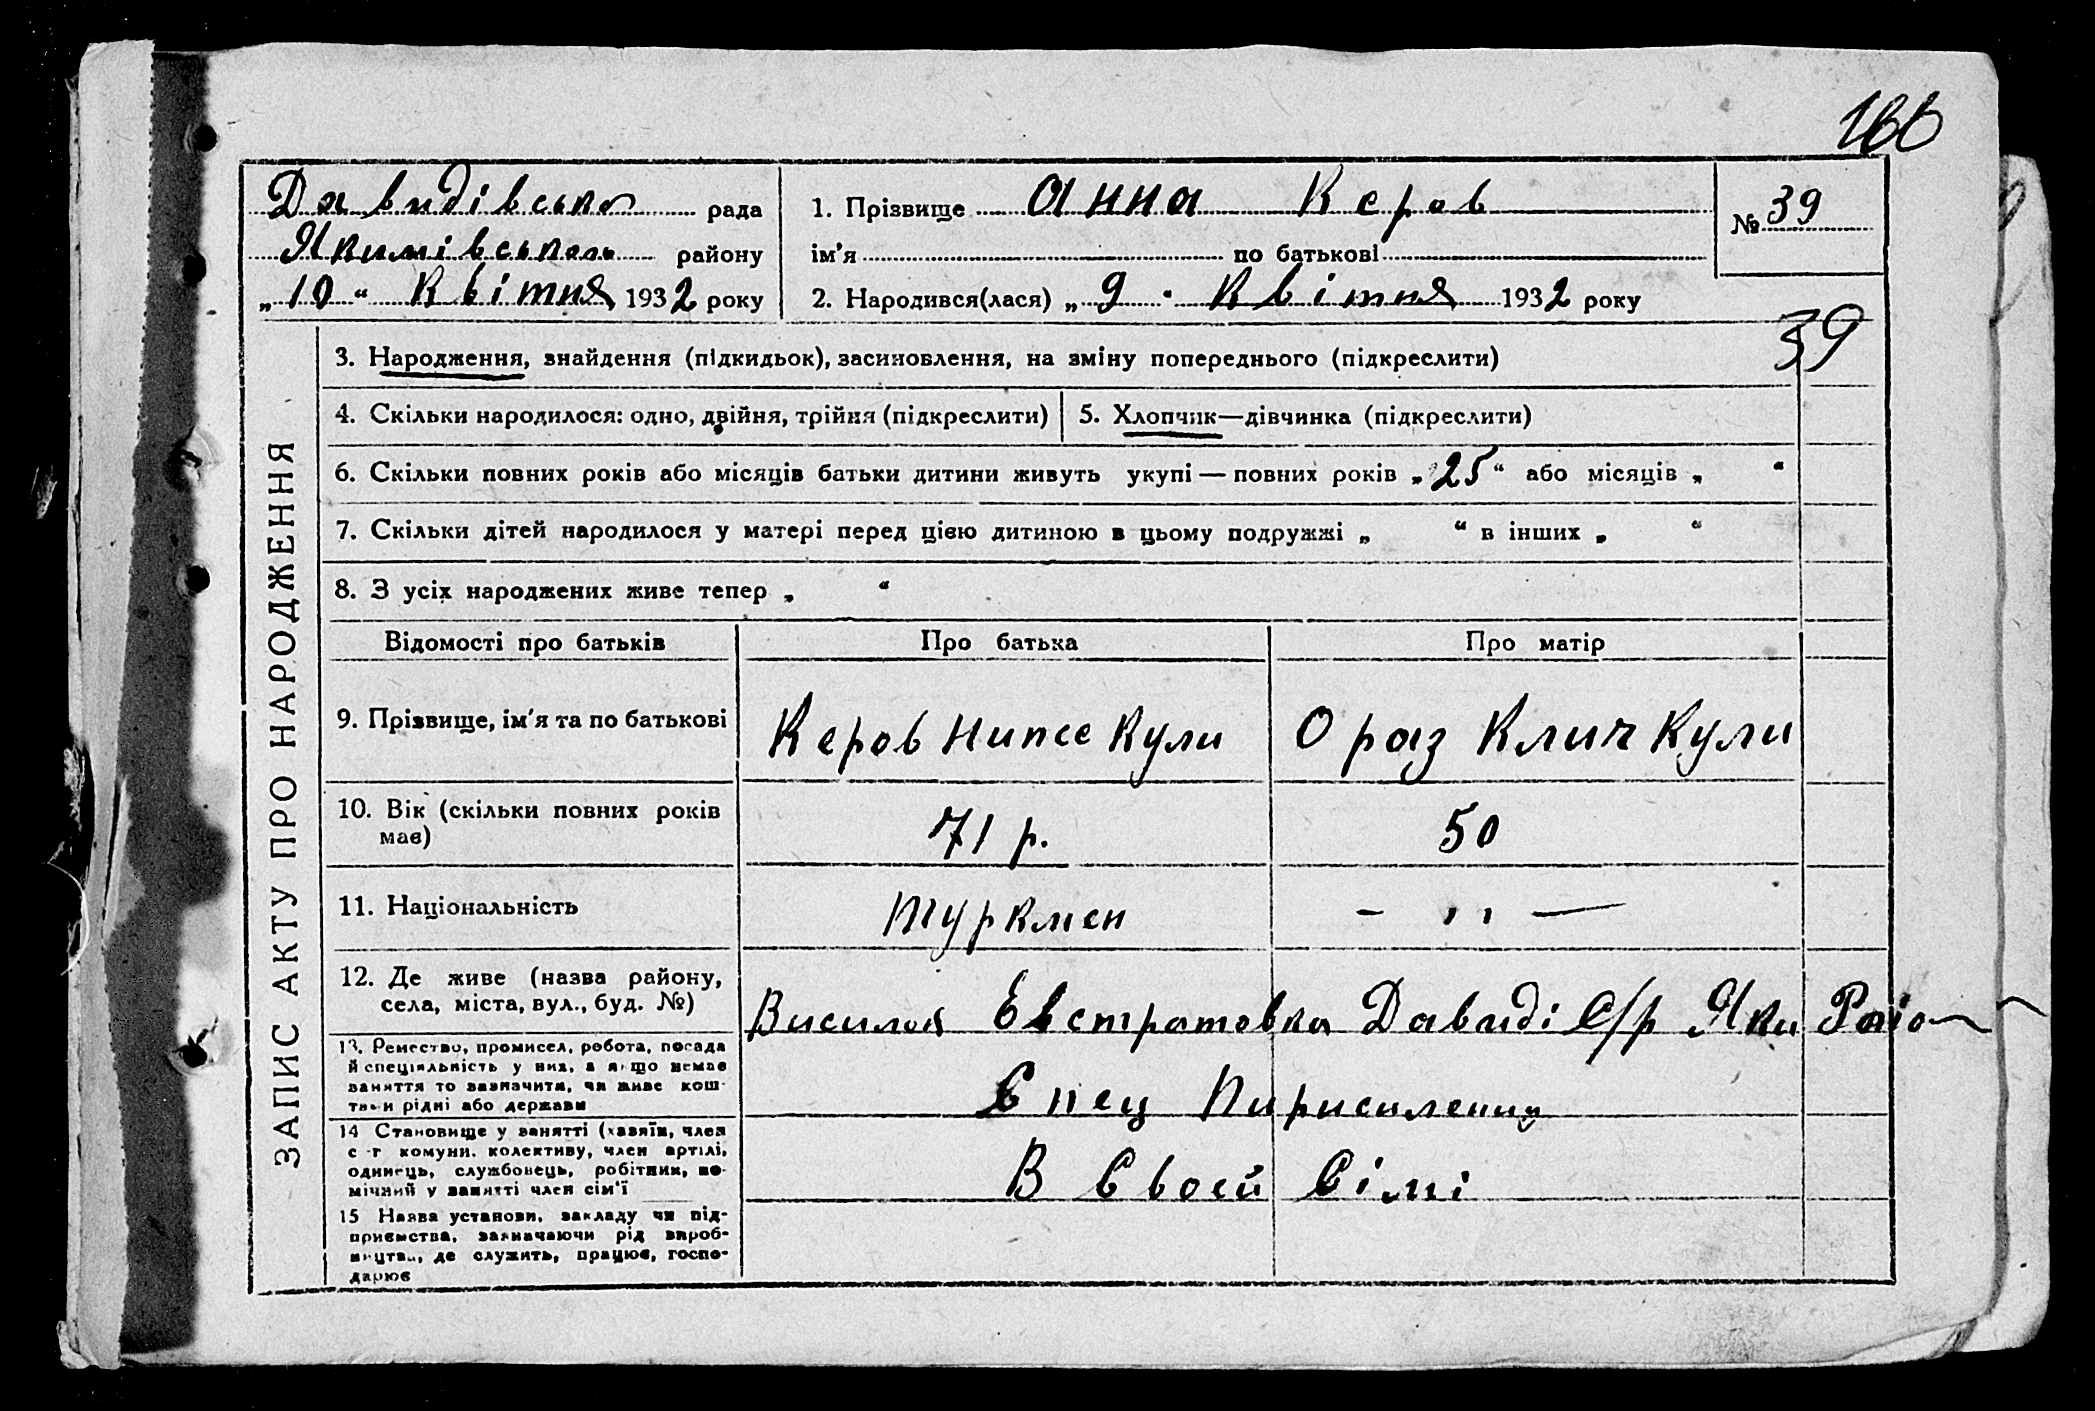 166
Давидівська рада
Якимівського району
„10“ Квітня 1932 року
1. Прізвище Анна Керов
ім'я по батькові
2. Народився(лася) „9“ Квітня 1932 року
№ 39
39
ЗАПИС АКТУ ПРО НАРОДЖЕННЯ
3. Народження, знайдення (підкидьок), засиновлення, на зміну попереднього (підкреслити)
4. Скільки народилося: одно, двійня, трійня (підкреслити)
5. Хлопчик—дівчинка (підкреслити)
6. Скільки повних років або місяців батьки дитини живуть укупі — повних років „25“ або місяців „ “
7. Скільки дітей народилося у матері перед цією дитиною в цьому подружжі „ “ в інших „ “
8. З усіх народжених живе тепер „ “
Відомості про батьків Про батька Про матір
9. Прізвище, ім'я та по батькові Керов Нипес Кули Ораз Клич Кули
10. Вік (скільки повних років
має) 71 р. 50
11. Національність Туркмен — ,, —
12. Де живе (назва району,
села, міста, вул., буд. №) Висилок Евстратовка Давиді С/р Яки Райо
13. Ремество, промисел, робота, посада
й спеціяльність у них, а якщо немає
заняття то зазначити, чи живе кош-
тами рідні або держави Спец
14 Становище у занятті (хазяїн, член
с-г комуни, колективу, член артілі,
одинець, службовець, робітник, по-
мічний у занятті член сім'ї В Своєй Сімі
15 Назва установи, закладу чи під-
приємства, зазначаючи рід вироб-
ництва, де служить, працює, госпо-
дарює